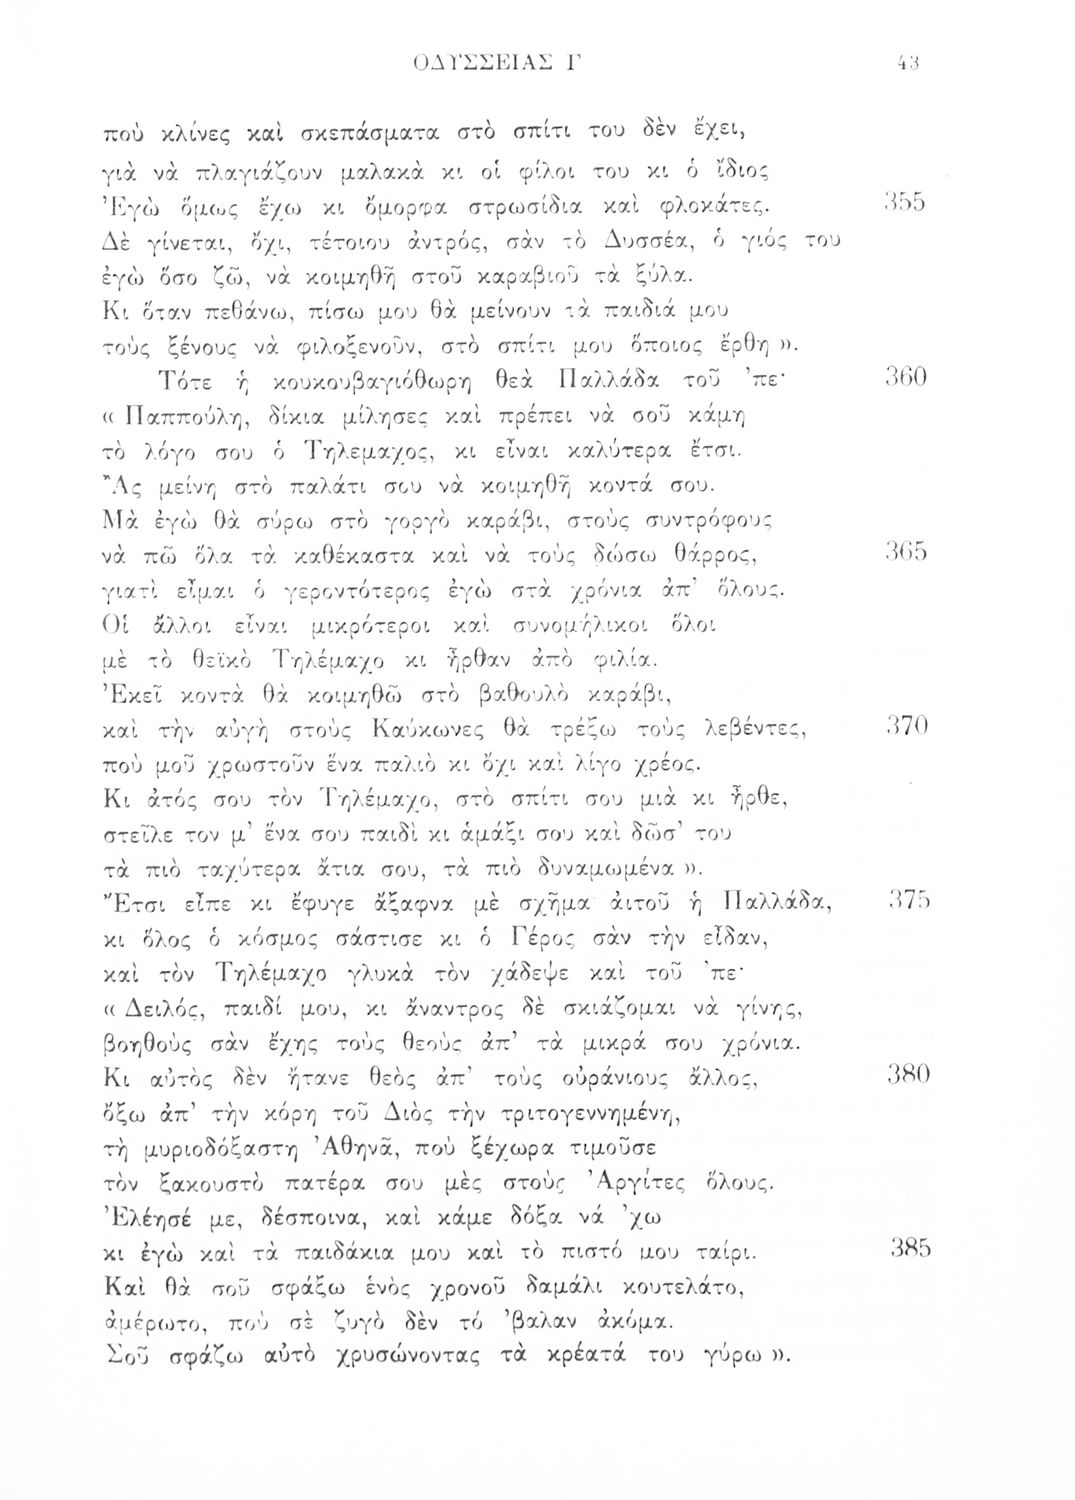 ΟΔΥΣΣΕΙΑΣ Γ 43
ποὺ κλίνες καὶ σκεπάσματα στὸ σπίτι του δὲν ἔχει,
γιὰ νὰ πλαγιάζουν μαλακὰ κι οἱ φίλοι του κι ὁ ἴδιος
Ἐγὼ ὅμως ἔχω κι ὄμορφα στρωσίδια καὶ φλοκάτες. 355
Δὲ γίνεται, ὄχι, τέτοιου ἀντρός, σὰν τὸ Δυσσέα, ὁ γιός του
ἐγὼ ὅσο ζῶ, νὰ κοιμηθῆ στοῦ καραβιοῦ τὰ ξύλα.
Κι ὅταν πεθάνω, πίσω μου θὰ μείνουν τὰ παιδιά μου
τοὺς ξένους νὰ φιλοξενοῦν, στὸ σπίτι μου ὅποιος ἔρθη ».
Τότε ἡ κουκουβαγιόθωρη θεὰ Παλλάδα τοῦ ᾿πε· 360
« Παππούλη, δίκια μίλησες καὶ πρέπει νὰ σοῦ κάμη
τὸ λόγο σου ὁ Τηλεμαχος, κι εἶναι καλύτερα ἔτσι.
Ἂς μείνη στὸ παλάτι σου νὰ κοιμηθῆ κοντά σου.
Μὰ ἐγὼ θὰ σύρω στὸ γοργὸ καράβι, στοὺς συντρόφους
νὰ πῶ ὅλα τὰ καθέκαστα καὶ νὰ τοὺς δώσω θάρρος, 365
γιατὶ εἶμαι ὁ γεροντότερος ἐγὼ στὰ χρόνια ἀπ᾿ ὅλους.
Οἱ ἄλλοι εἶναι μικρότεροι καὶ συνομήλικοι ὅλοι
μὲ τὸ θεϊκὸ Τηλέμαχο κι ἦρθαν ἀπὸ φιλία.
Ἐκεῖ κοντὰ θὰ κοιμηθῶ στὸ βαθουλὸ καράβι,
καὶ τὴν αὐγὴ στοὺς Καύκωνες θὰ τρέξω τοὺς λεβέντες, 370
ποὺ μοῦ χρωστοῦν ἕνα παλιὸ κι ὄχι καὶ λίγο χρέος.
Κι ἀτός σου τὸν Τηλέμαχο, στὸ σπίτι σου μιὰ κι ἦρθε,
στεῖλε τον μ᾿ ἕνα σου παιδὶ κι ἁμάξι σου καὶ δῶσ᾿ του
τὰ πιὸ ταχύτερα ἄτια σου, τὰ πιὸ δυναμωμένα ».
Ἔτσι εἶπε κι ἔφυγε ἄξαφνα μὲ σχῆμα ἀιτοῦ ἡ Παλλάδα, 375
κι ὅλος ὁ κόσμος σάστισε κι ὁ Γέρος σὰν τὴν εἶδαν,
καὶ τὸν Τηλέμαχο γλυκὰ τὸν χάδεψε καὶ τοῦ ᾿πε·
« Δειλός, παιδί μου, κι ἄναντρος δὲ σκιάζομαι νὰ γίνης,
βοηθοὺς σὰν ἔχης τοὺς θεοὺς ἀπ᾿ τὰ μικρά σου χρόνια.
Κι αὐτὸς δὲν ἤτανε θεὸς ἀπ᾿ τοὺς οὐράνιους ἄλλος, 380
ὄξω ἀπ᾿ τὴν κόρη τοῦ Διὸς τὴν τριτογεννημένη,
τὴ μυριοδόξαστη Ἀθηνᾶ, ποὺ ξέχωρα τιμοῦσε
τὸν ξακουστὸ πατέρα σου μὲς στοὺς Ἀργίτες ὅλους.
Ἐλέησέ με, δέσποινα, καὶ κάμε δόξα νά ᾿χω
κι ἐγὼ καὶ τὰ παιδάκια μου καὶ τὸ πιστό μου ταίρι. 385
Καὶ θὰ σοῦ σφάξω ἑνὸς χρονοῦ δαμάλι κουτελάτο,
ἀμέρωτο, ποὺ σὲ ζυγὸ δὲν τό ᾿βαλαν ἀκόμα.
Σοῦ σφάζω αὐτὸ χρυσώνοντας τὰ κρέατά του γύρω ».